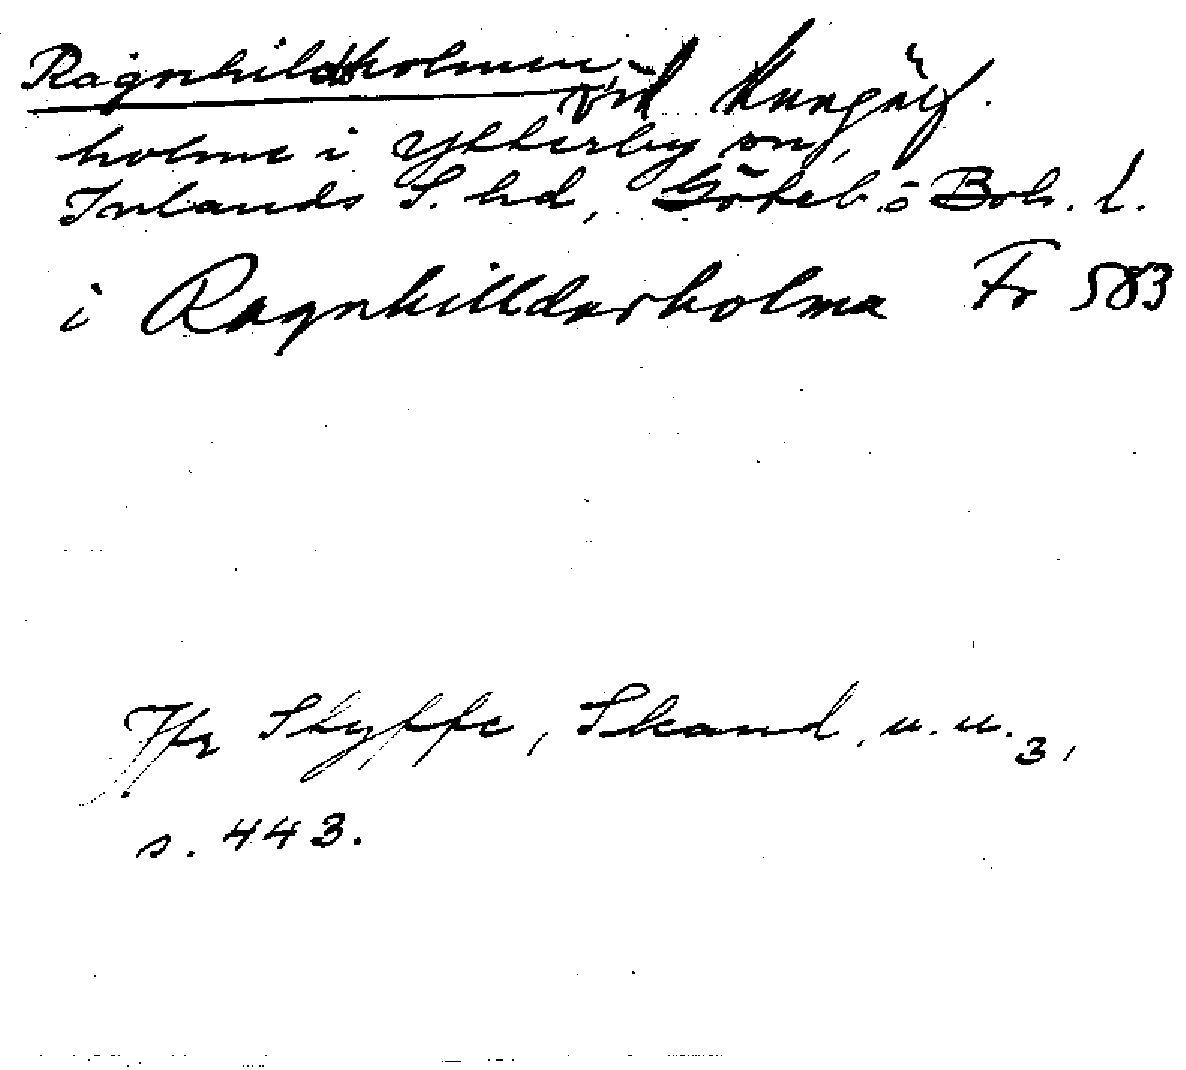 Ragnhildsholmen vid Kungälv.
holme i Ytterby sn,
Inlands S. hd, Göteb o Boh. l.
i Ragnhilldarholma Fr 583
Jfr Styffe, Skand. u. u. 3,
s. 443.